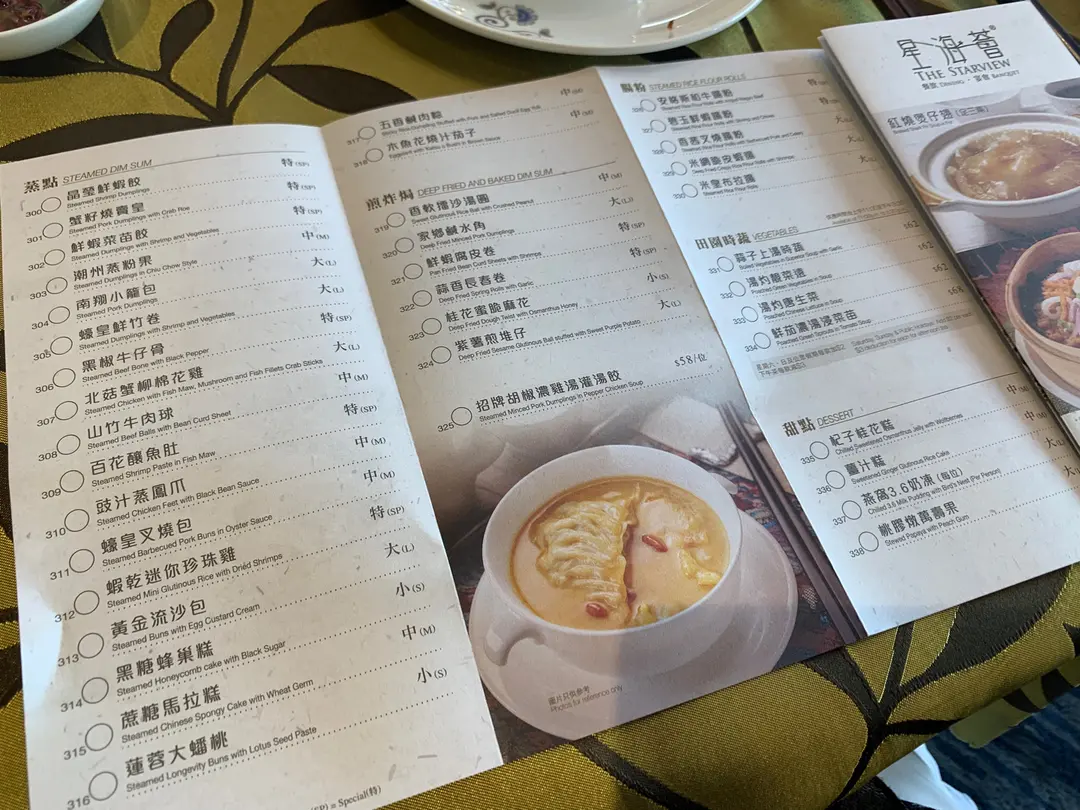 蒸點 STEAMED DIM SUM
晶瑩鮮蝦餃 特(SP)
300 Steamed Shrimp Dumplings
蟹籽燒賣皇 特(SP)
301 Steamed Pork Dumplings with Crab Roe
鮮蝦菜苗餃 特(SP)
302 Steamed Dumplings with Shrimp and Vegetables
潮州蒸粉果 中(M)
303 Steamed Dumplings in Chiu Chow Style
南翔小籠包 大(L)
304 Steamed Pork Dumplings
蠔皇鮮竹卷 大(L)
305 Steamed Dumplings with Shrimp and Vegetables
黑椒牛仔骨 特(SP)
306 Steamed Beef Bone with Black Pepper
北菇蟹柳棉花雞 大(L)
307 Steamed Chicken with Fish Maw, Mushroom and Fish Fillets Crab Sticks
山竹牛肉球 中(M)
308 Steamed Beef Balls with Bean Curd Sheet
百花釀魚肚 特(SP)
309 Steamed Shrimp Paste in Fish Maw
豉汁蒸鳳爪 中(M)
310 Steamed Chicken Feet with Black Bean Sauce
蠔皇叉燒包 中(M)
311 Steamed Barbecued Pork Buns in Oyster Sauce
蝦乾迷你珍珠雞 特(SP)
312 Steamed Mini Glutinous Rice with Dried Shrimps
黃金流沙包 大(L)
313 Steamed Buns with Egg Custard Cream
黑糖蜂巢糕 小(S)
314 Steamed Honeycomb cake with Black Sugar
蔗糖馬拉糕 中(M)
315 Steamed Chinese Spongy Cake with Wheat Germ
蓮蓉大蟠桃 小(S)
316 Steamed Longevity Buns with Lotus Seed Paste
(SP) = Special(特)
五香鹹肉粽 中(M)
317
木魚花燒汁茄子 中(M)
318
煎炸焗 DEEP FRIED AND BAKED DIM SUM
香軟擂沙湯圓 中(M)
319 Sweet Glutinous Rice Ball with Crushed Peanut
家鄉鹹水角 大(L)
320 Deep Fried Minced Pork Dumplings
鮮蝦腐皮卷 特(SP)
321 Pan Fried Bean Curd Sheets with Shrimps
蒜香長春卷 特(SP)
322 Deep Fried Spring Rolls with Garlic
桂花蜜脆麻花 小(S)
323 Deep Fried Dough Twist with Osmanthus Honey
紫薯煎堆仔 大(L)
324 Deep Fried Sesame Glutinous Ball stuffed with Sweet Purple Potato
招牌胡椒濃雞湯灌湯餃 $58/位
325 Steamed Minced Pork Dumplings in Pepper Chicken Soup
圖片只供參考
Photos for reference only
腸粉 STEAMED RICE FLOUR ROLLS
326
327
香茜叉燒腸粉
328
米網脆皮蝦腸
329
米皇布拉腸
330 Steamed Rice Flour Rolls
田園時蔬 VEGETABLES
蒜子上湯時蔬 $62
331 Boiled Vegetables in Superior Soup with Garlic
湯灼靚菜遠 $62
332 Poached Green Vegetables in Soup
湯灼唐生菜 $62
333 Poached Chinese Lettuce in Soup
鮮茄濃湯浸菜苗 $68
334 Poached Green Sprouts in Tomato Soup
甜點 DESSERT
杞子桂花糕 中(M)
335 Chilled Sweetened Osmanthus Jelly with Wolfberries
薑汁糕 中(M)
336 Sweetened Ginger Glutinous Rice Cake
燕窩3.6奶凍 (每位)
337 Chilled 3.6 Milk Pudding with Bird's Nest (Per Person)
桃膠燉萬壽果
338 Stewed Papaya with Peach Gum
星海薈
THE STARVIEW
餐飲 DINING · 宴會 BANQUET
紅燒煲仔翅